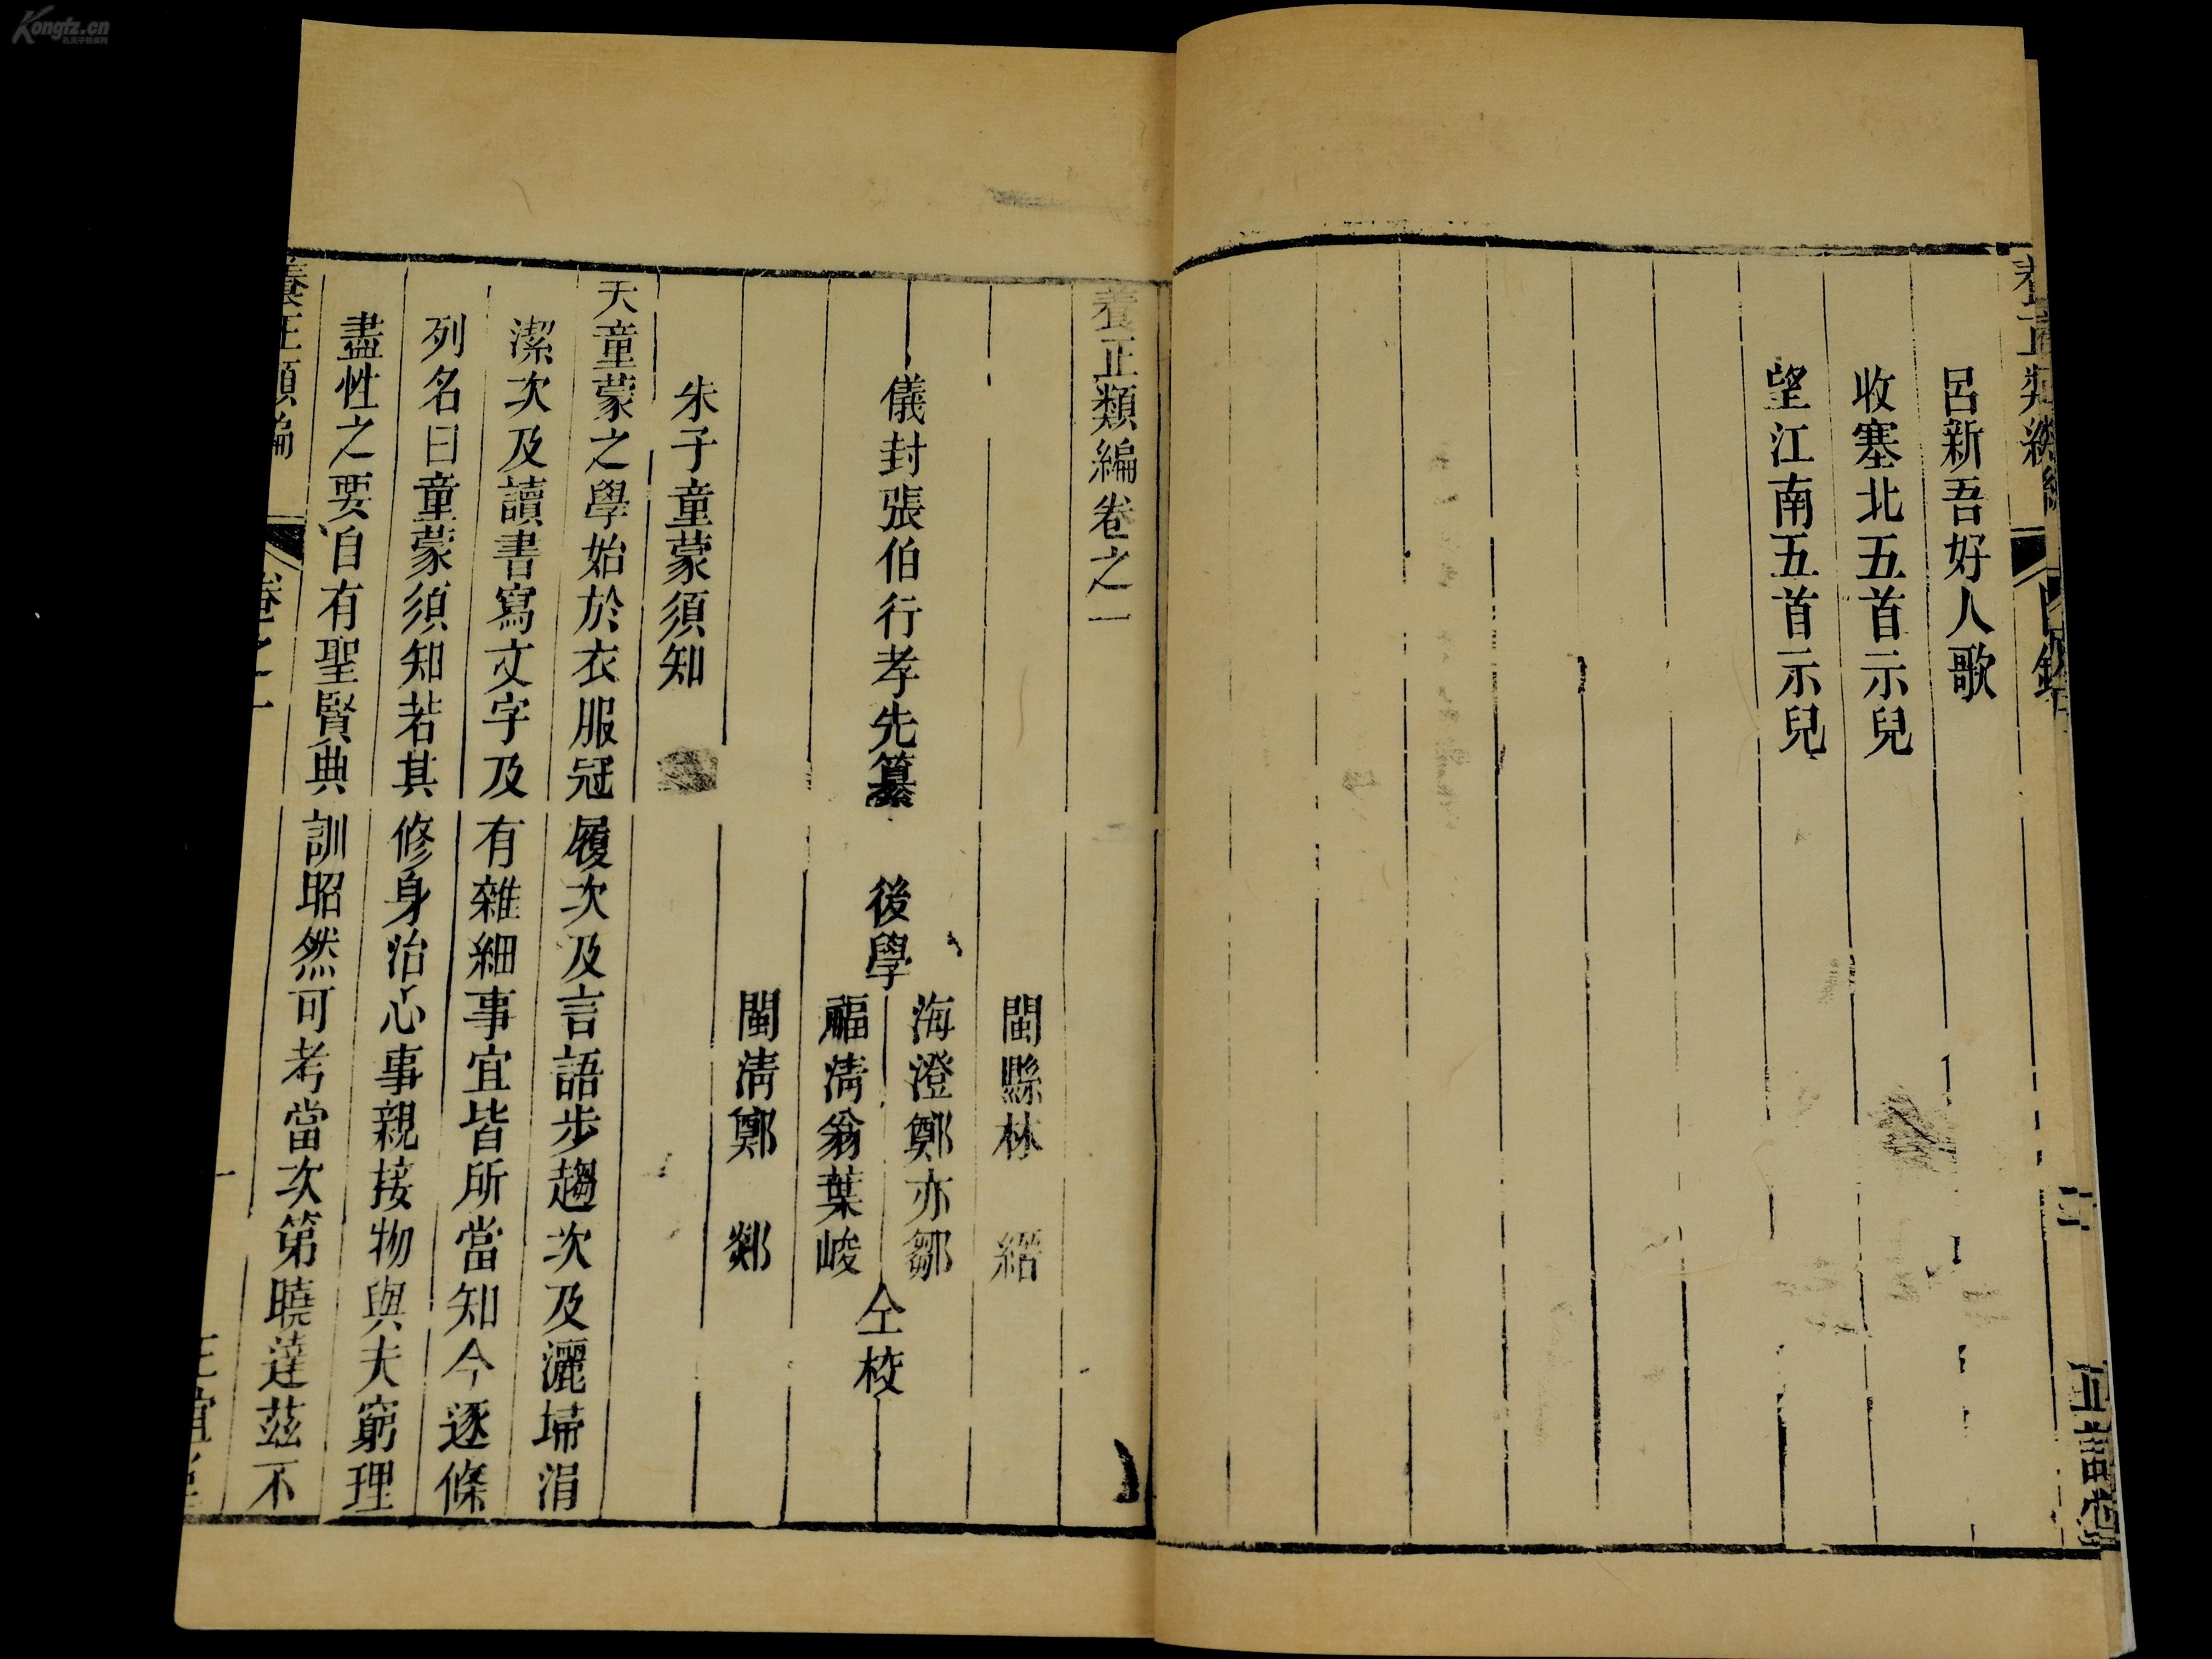 Kongfz.cn
孔夫子拍卖网
養正類編
目錄
三
正誼堂
呂新吾好人歌
收塞北五首示兒
望江南五首示兒
養正類編卷之一
閩縣林 縉
海澄鄭亦鄒
儀封張伯行孝先纂 後學 仝校
福清翁葉峻
閩清鄭 郯
朱子童蒙須知
夫童蒙之學始於衣服冠履次及言語步趨次及灑埽涓
潔次及讀書寫文字及有雜細事宜皆所當知今逐條
列名曰童蒙須知若其修身治心事親接物與夫窮理
盡性之要自有聖賢典訓昭然可考當次第曉達茲不
養正類編
卷之一
一
正誼堂